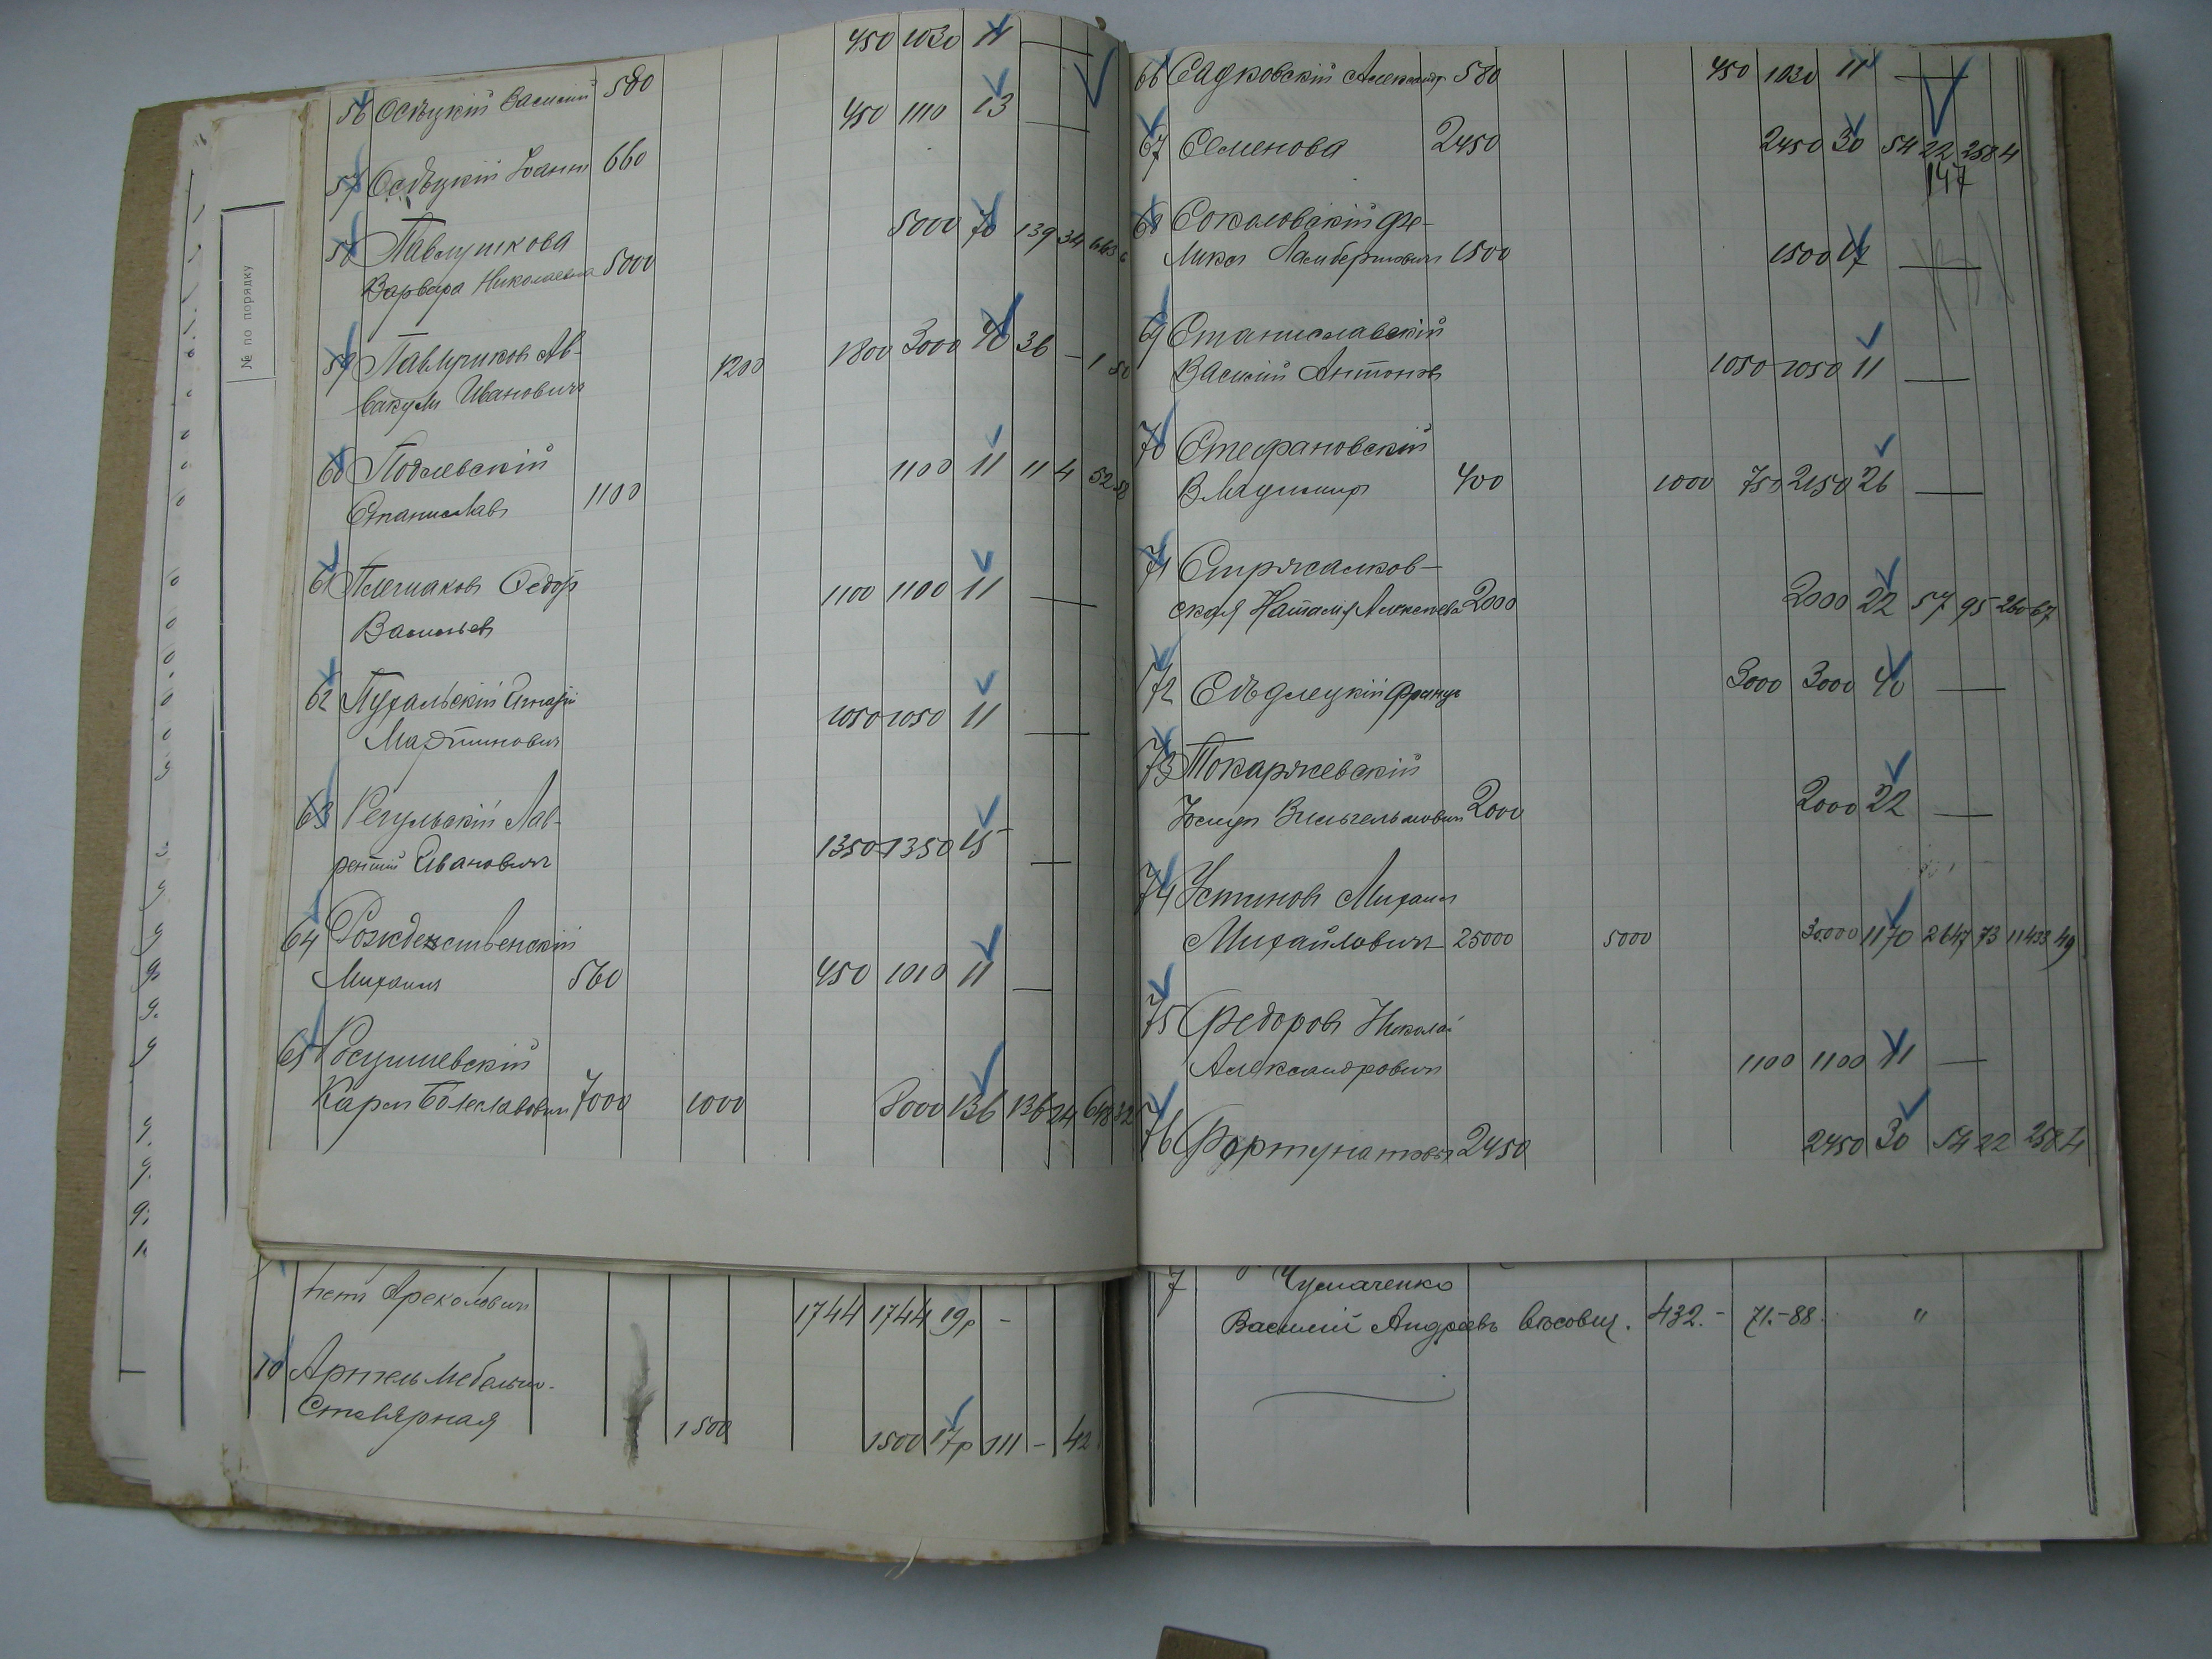 450 1030 11 —
56 Осѣцкій Василій 580
450 1110 13 —
57 Осѣцкій Іоаннъ 660
5000 70 139 34
58 Павлушкова
Варвара Николаевна 5000
59 Павлушковъ Ав-
вакумъ Ивановичъ 1200 1800 3000 40 36 — 1 50
60 Подлевскій
Станиславъ 1100 1100 11 11 4 52 58
61 Плешаковъ Ѳедоръ
Васильев 1100 1100 11 —
62 Пухальскій
Мартиновичъ 1050 1050 11 —
63 Регульскій Лав-
рентій Ивановичъ 1350 1350 15 —
64 Рождественскій
Михаилъ 560 450 1010 11 —
65 Росушевскій
Карлъ Болеславовичъ 7000 1000 8000 136 136 24 648 32
№ по порядку
нетъ
1744 1744 19р -
10 Артель Мебельно-
Столярная
1500 1500 17р 111 - 42
66 Садковскій Александръ 580 450 1030 11 —
67 Семенова 2450 2450 30 54 22 258 4
147
68 Сокаловскій Фе-
ликсъ Ламбертовичъ 1500 1500 17 —
69 Станиславскій
Василій Антоновъ 1050 1050 11 —
70 Стефановскій
Владиміръ 400 1000 750 2150 26 —
71 Стржалков-
ская Наталія Алексѣева 2000 2000 22 57 95 260 67
72 Сѣдлецкій Францъ 3000 3000 40 —
73 Токаржевскій
Іосифъ Вильгельмовичъ 2000 2000 22 —
74 Устиновъ Михаилъ
Михайловичъ 25000 5000 30000 1170 2647 73 11433 49
75 Федоровъ Николай
Александровичъ 1100 1100 11 —
76 Фортунатовъ 2450 2450 30 54 22 258 4
7 Чумаченко
Василій Андреевъ вѣсовщ. 432.- 71.-88. "